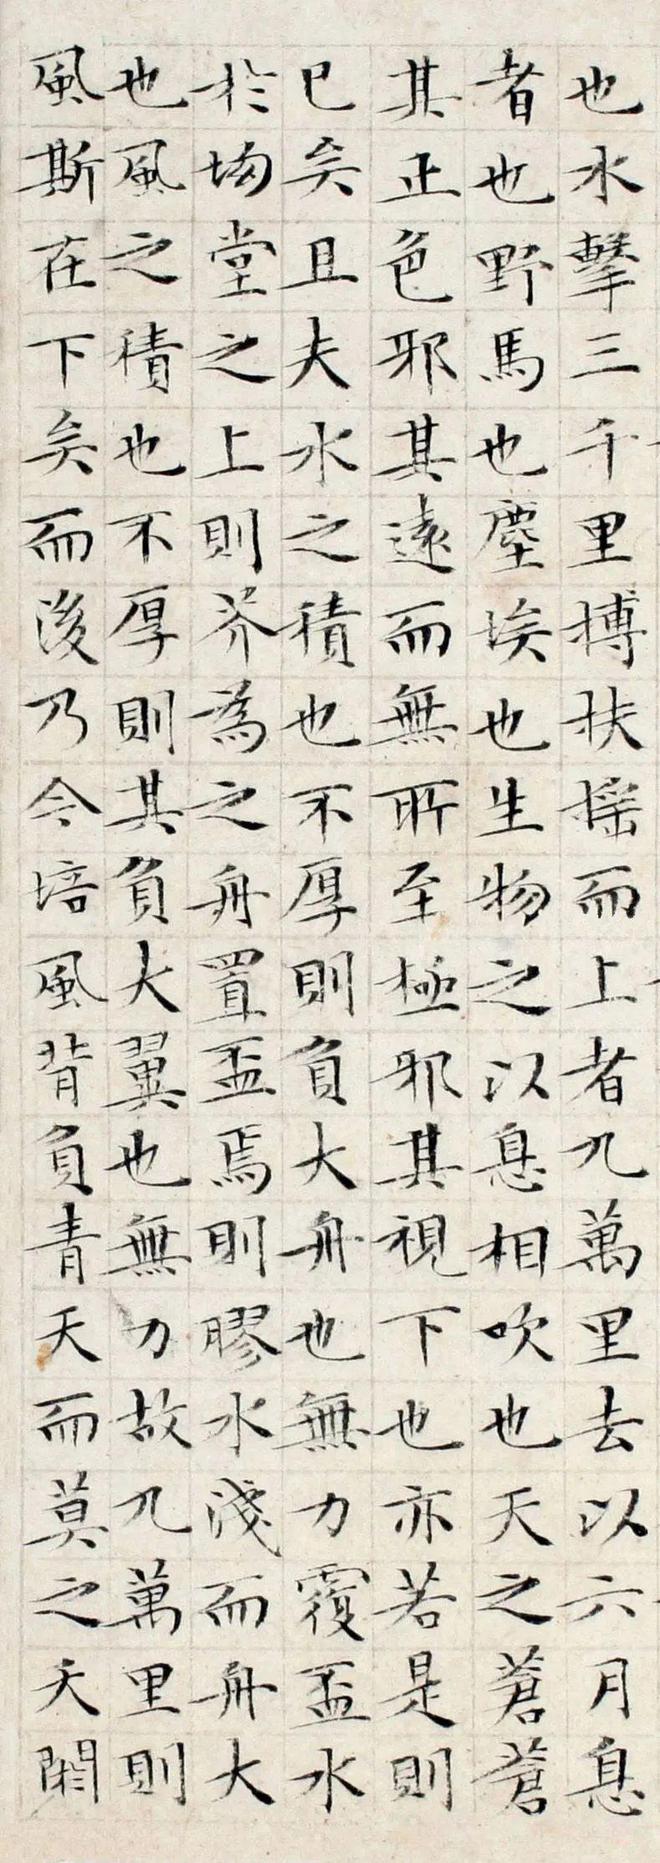 也水擊三千里搏扶搖而上者九萬里去以六月息
者也野馬也塵埃也生物之以息相吹也天之蒼蒼
其正色邪其遠而無所至極邪其視下也亦若是則
已矣且夫水之積也不厚則負大舟也無力覆盃水
於坳堂之上則芥為之舟置盃焉則膠水淺而舟大
也風之積也不厚則其負大翼也無力故九萬里則
風斯在下矣而後乃今培風背負青天而莫之夭閼